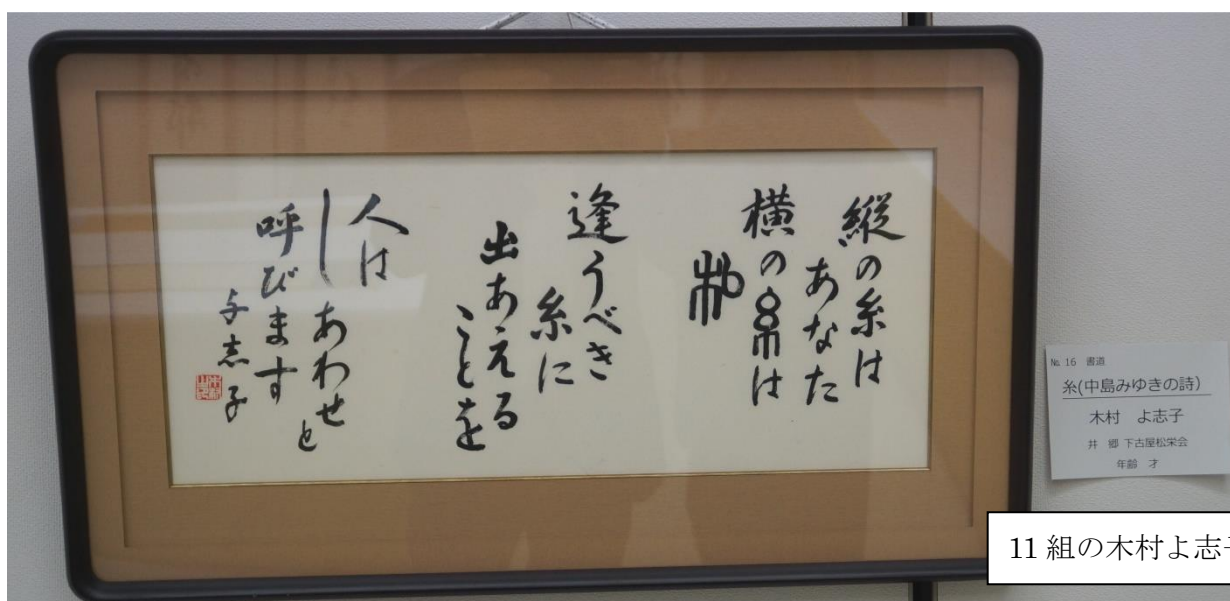 縦の糸は
あなた
横の糸は
私
逢うべき
糸に
出あえる
ことを
人は
しあわせと
呼びます
与志子
№ 16 書道
糸(中島みゆきの詩)
木村 よ志子
井 郷 下古屋松栄会
年齢 才
11 組の木村よ志子